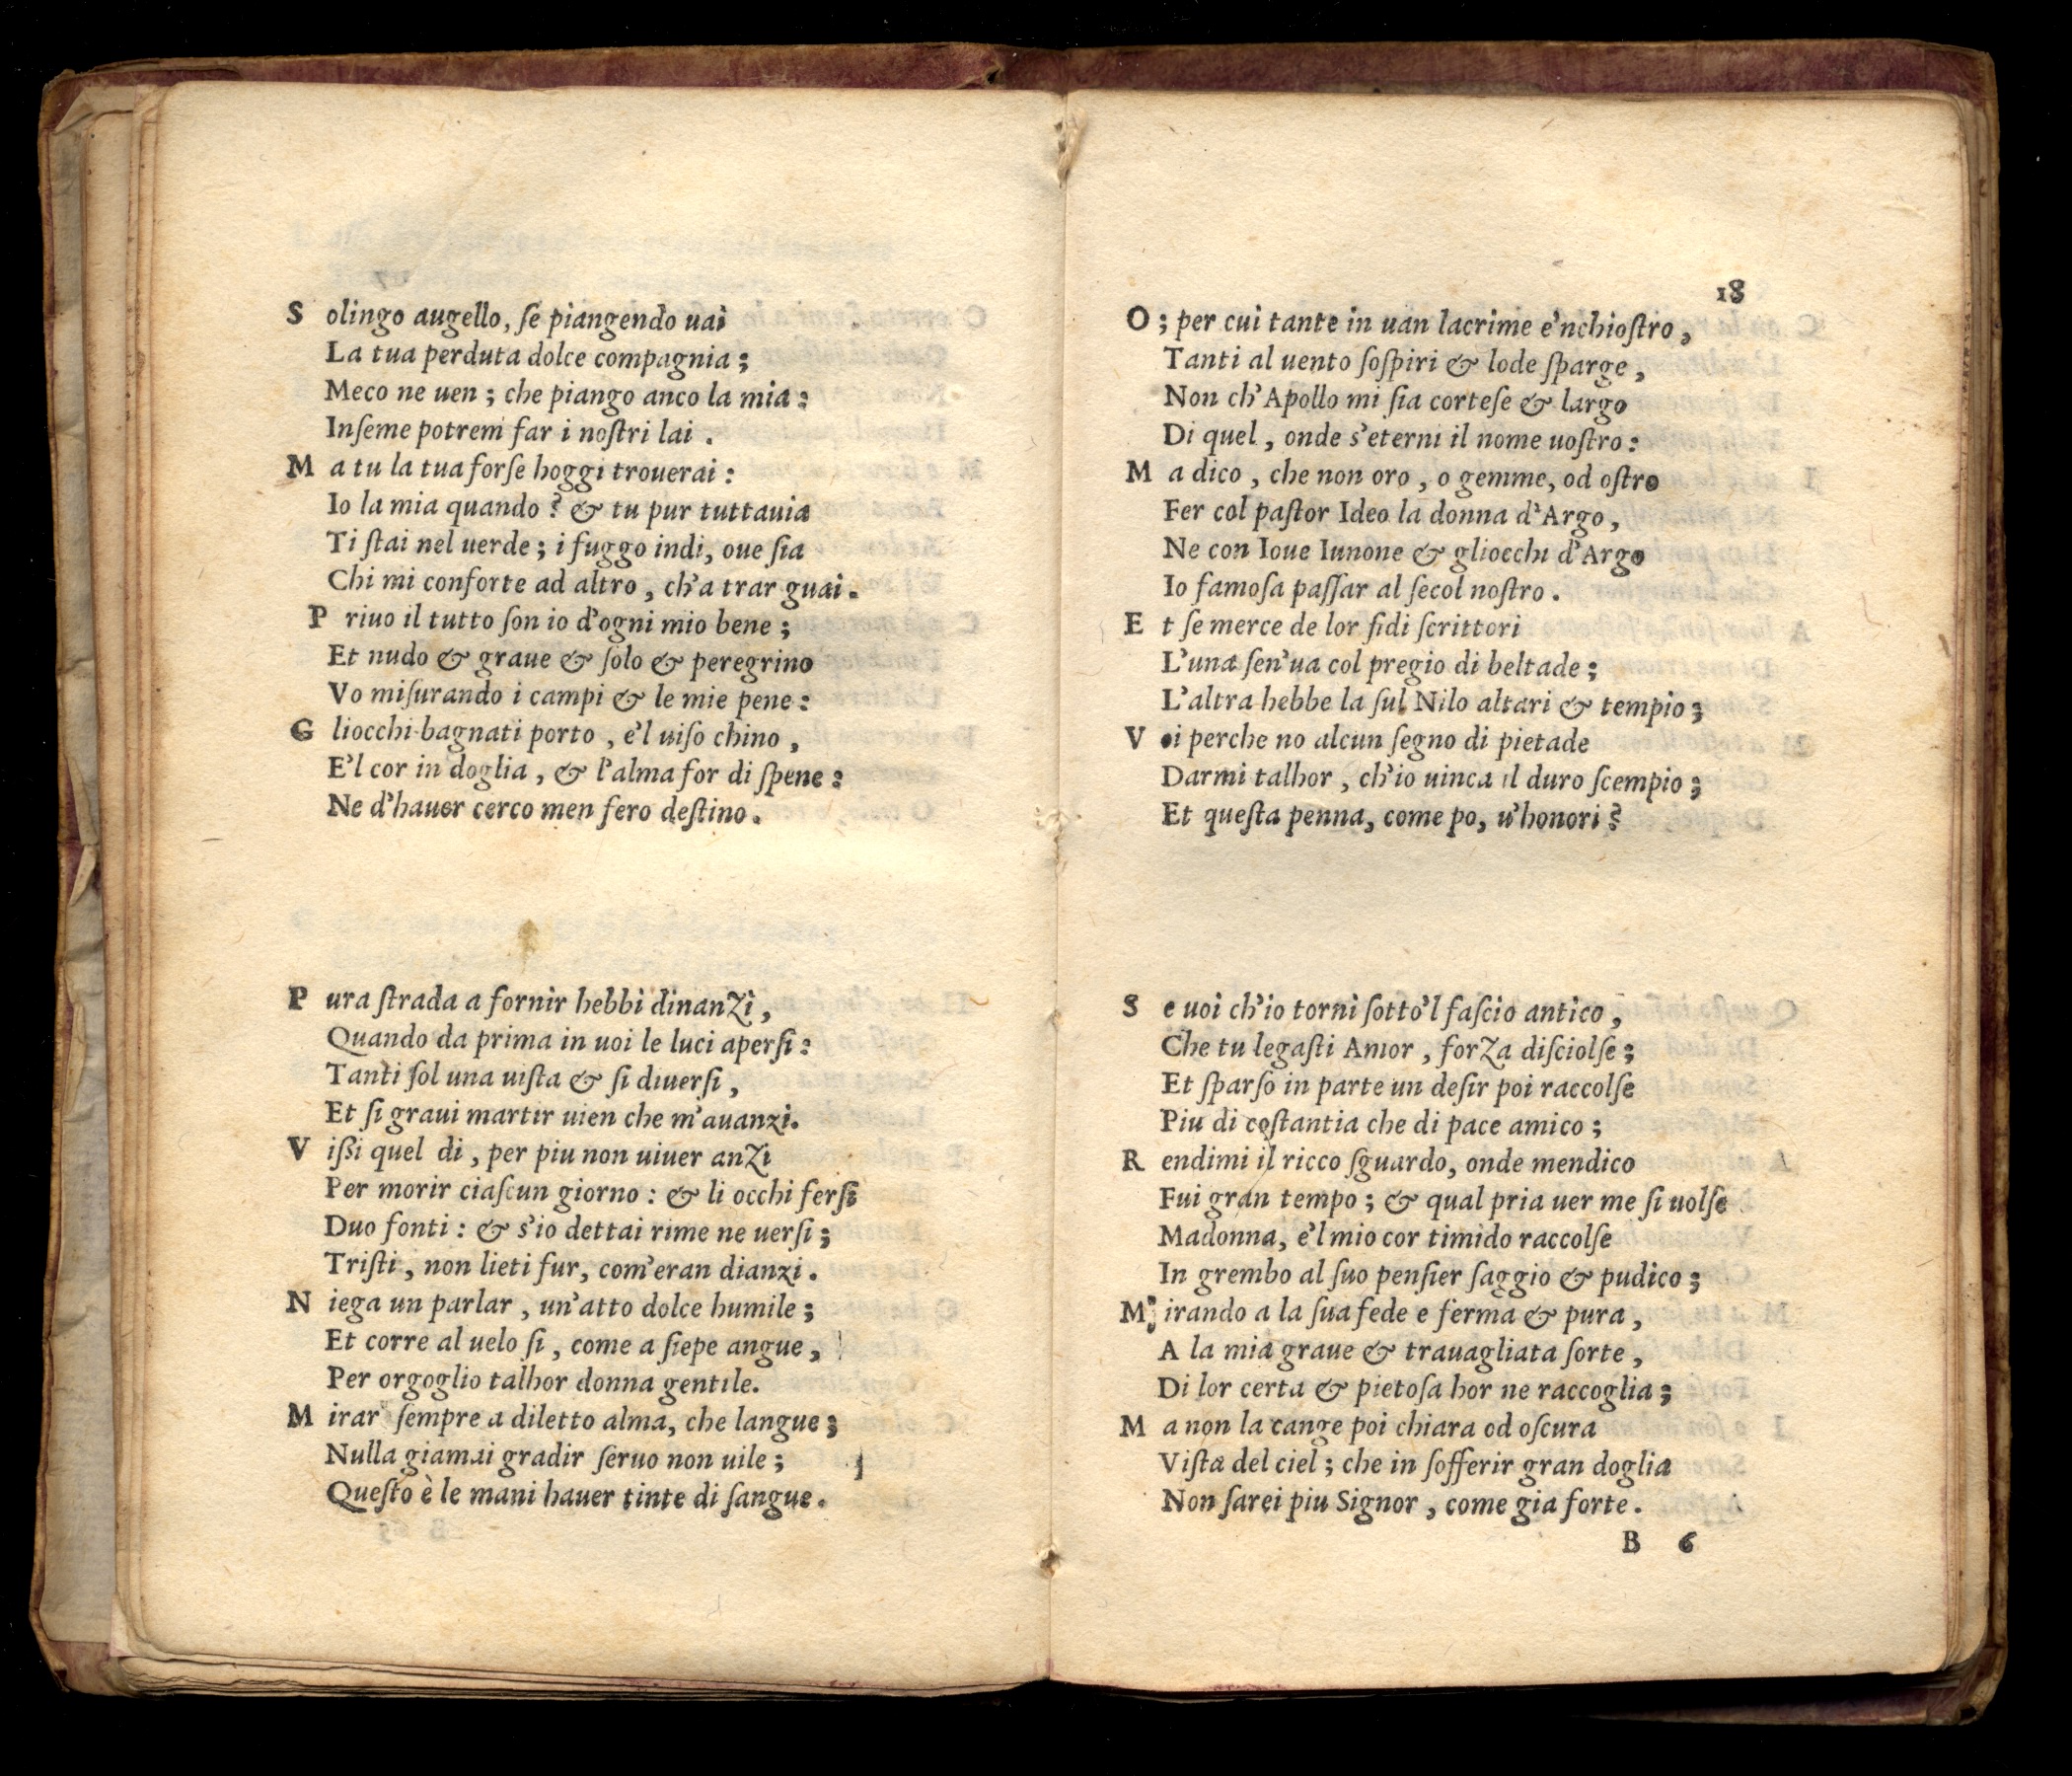 S olingo augello, ſe piangendo uai
La tua perduta dolce compagnia;
Meco ne uen; che piango anco la mia:
Inſeme potrem far i noſtri lai.
M a tu la tua forſe hoggi trouerai:
Io la mia quando? & tu pur tuttauia
Ti ſtai nel uerde; i fuggo indi, oue ſia
Chi mi conforte ad altro, ch'a trar guai.
P riuo il tutto ſon io d'ogni mio bene;
Et nudo & graue & ſolo & peregrino
Vo miſurando i campi & le mie pene:
G liocchi bagnati porto, e'l uiſo chino,
E'l cor in doglia, & l'alma for di ſpene:
Ne d'hauer cerco men fero deſtino.
P ura ſtrada a fornir hebbi dinanzi,
Quando da prima in uoi le luci aperſi:
Tanti ſol una uiſta & ſi diuerſi,
Et ſi graui martir uien che m'auanzi.
V iſsi quel di, per piu non uiuer anzi
Per morir ciaſcun giorno: & li occhi ferſi
Duo fonti: & s'io dettai rime ne uerſi;
Triſti, non lieti fur, com'eran dianzi.
N iega un parlar, un'atto dolce humile;
Et corre al uelo ſi, come a ſiepe angue,
Per orgoglio talhor donna gentile.
M irar ſempre a diletto alma, che langue;
Nulla giamai gradir ſeruo non uile;
Queſto è le mani hauer tinte di ſangue.
18
O; per cui tante in uan lacrime e'nchioſtro,
Tanti al uento ſoſpiri & lode ſparge,
Non ch'Apollo mi ſia corteſe & largo
Di quel, onde s'eterni il nome uoſtro:
M a dico, che non oro, o gemme, od oſtro
Fer col paſtor Ideo la donna d'Argo,
Ne con Ioue Iunone & gliocchi d'Argo
Io famoſa paſſar al ſecol noſtro.
E t ſe merce de lor fidi ſcrittori
L'una ſen'ua col pregio di beltade;
L'altra hebbe la ſul Nilo altari & tempio;
V oi perche no alcun ſegno di pietade
Darmi talhor, ch'io uinca il duro ſcempio;
Et queſta penna, come po, u'honori?
S e uoi ch'io torni ſotto'l faſcio antico,
Che tu legaſti Amor, forza diſciolſe;
Et ſparſo in parte un deſir poi raccolſe
Piu di coſtantia che di pace amico;
R endimi il ricco ſguardo, onde mendico
Fui gran tempo; & qual pria uer me ſi uolſe
Madonna, e'l mio cor timido raccolſe
In grembo al ſuo penſier ſaggio & pudico;
M irando a la ſua fede e ferma & pura,
A la mia graue & trauagliata ſorte,
Di lor certa & pietoſa hor ne raccoglia;
M a non la cange poi chiara od oſcura
Viſta del ciel; che in ſofferir gran doglia
Non ſarei piu Signor, come gia forte.
B 6